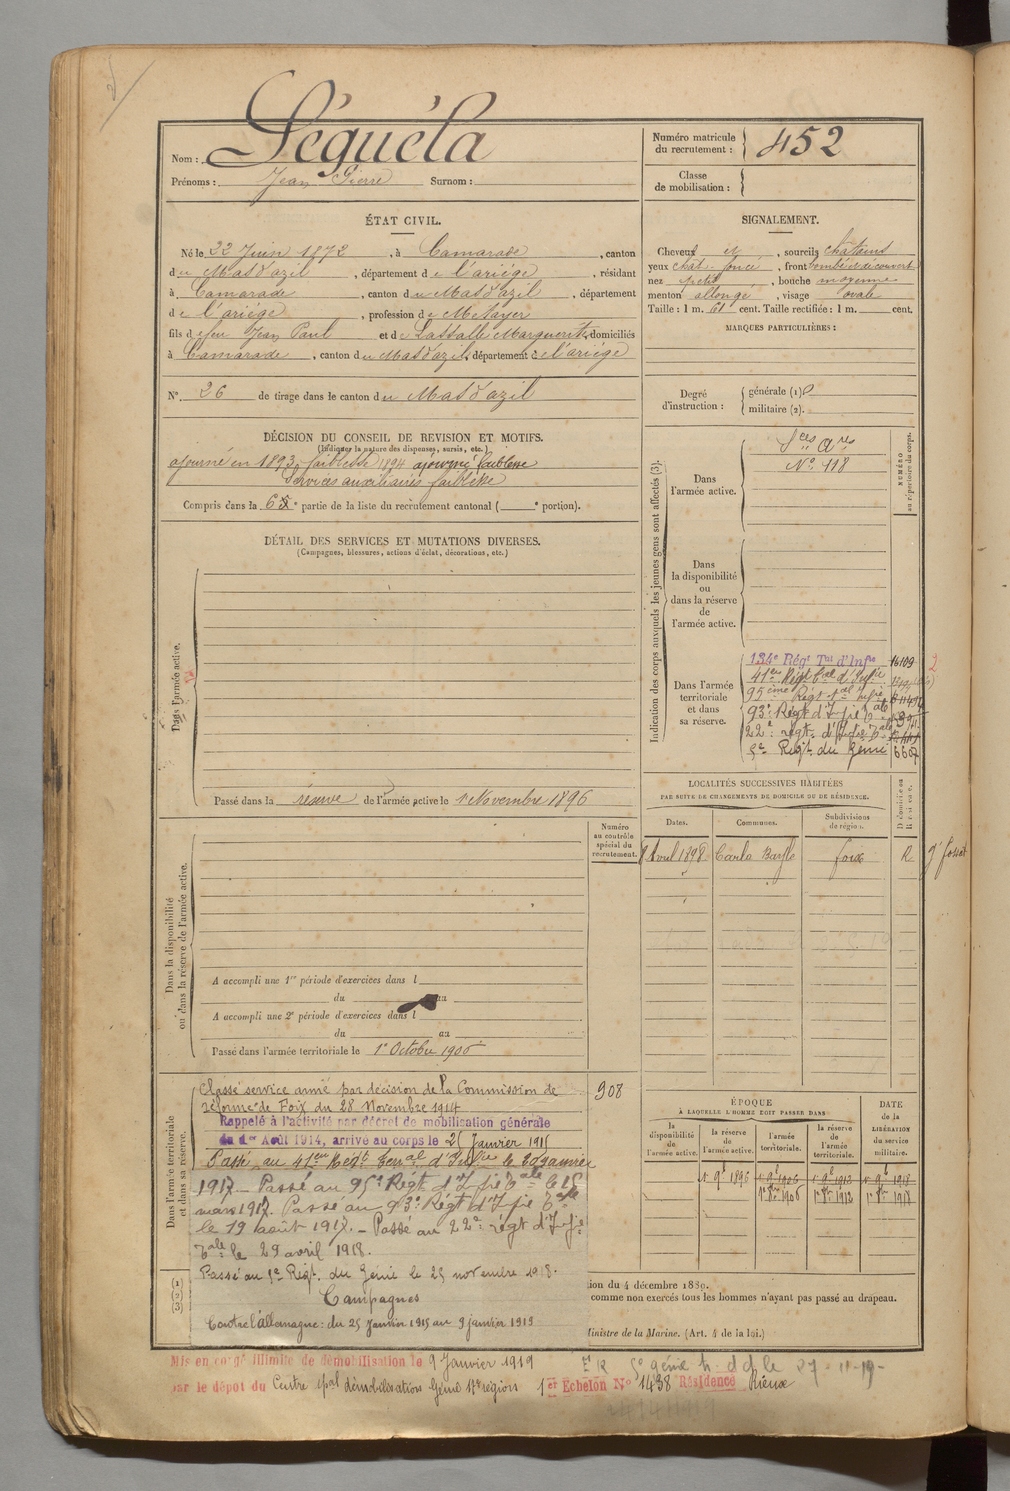 Nom : Séguéla
Prénoms : Jean Pierre Surnom :
Numéro matricule du recrutement : 452
Classe de mobilisation :
ÉTAT CIVIL.
Né le 22 Juin 1872, à Camarade, canton
du Mas d'azil, département de l'ariége, résidant
à Camarade, canton du Mas d'azil, département
de l'ariége, profession de Metayer
fils de feu Jean Paul et de Lassalle Marguerite, domiciliés
à Camarade, canton du Mas d'azil, département de l'ariége
N° 26 de tirage dans le canton du Mas d'azil
SIGNALEMENT.
Cheveux et, sourcils chatains
yeux chat. foncé, front bombé et découvert
nez petit, bouche moyenne
menton allongé, visage ovale
Taille : 1 m. 61 cent. Taille rectifiée : 1 m. cent.
MARQUES PARTICULIÈRES :
Degré d'instruction : générale (1) militaire (2).
DÉCISION DU CONSEIL DE REVISION ET MOTIFS.
(Indiquer la nature des dispenses, sursis, etc.)
ajourné en 1893, faiblesse 1894 ajourné faiblesse
Services auxiliaires faiblesse
Compris dans la partie de la liste du recrutement cantonal ( e portion).
DÉTAIL DES SERVICES ET MUTATIONS DIVERSES.
(Campagnes, blessures, actions d'éclat, décorations, etc.)
Dans l'armée active.
Passé dans la réserve de l'armée active le 1er Novembre 1896
Indication des corps auxquels les jeunes gens sont affectés (3).
NUMÉRO au répertoire du corps.
Dans l'armée active.
Sces ares
N° 118
Dans la disponibilité ou dans la réserve de l'armée active.
Dans l'armée territoriale et dans sa réserve.
134e Régt Tal d'Infie 16109
41ème Régt tal d'Infie
95ème Régt tal infie
93e Régt d'Infie tale
22e régt. d'Infie tale
5e Régt. du Génie 6607
LOCALITÉS SUCCESSIVES HABITÉES
PAR SUITE DE CHANGEMENTS DE DOMICILE OU DE RÉSIDENCE.
Dates. Communes. Subdivisions de région. Domicile ou Résidence.
8 Avril 1898 Carla Bayle foix R gd fossat
Dans la disponibilité ou dans la réserve de l'armée active.
Numéro au contrôle spécial du recrutement.
A accompli une 1re période d'exercices dans l
du au
A accompli une 2e période d'exercices dans l
du au
Passé dans l'armée territoriale le 1er Octobre 1906
Dans l'armée territoriale et dans sa réserve.
908
Classé service armé par décision de la Commission de
réforme de Foix du 28 Novembre 1914
Rappelé à l'activité par décret de mobilisation générale
du 1er Août 1914, arrivé au corps le 25 Janvier 1915
Passé au 41ème Régt terral d'Infie le 20 janvier
1917. - Passé au 95e Régt d'Infie tale le 15
mars 1917. Passé au 93e Régt d'Infie tale
le 19 août 1917. - Passé au 22e régt d'Infie
tale le 29 avril 1918.
Passé au 5e Régt. du Génie le 25 novembre 1918.
Campagnes
Contre l'Allemagne : du 25 Janvier 1915 au 9 janvier 1919
ÉPOQUE
À LAQUELLE L'HOMME DOIT PASSER DANS
DATE de la LIBÉRATION du service militaire.
la disponibilité de l'armée active. la réserve de l'armée active. l'armée territoriale. la réserve de l'armée territoriale.
1er 9bre 1896 1er 9bre 1906 1er 9bre 1912 1er 9bre 1918
1er 8bre 1906 1er 8bre 1912 1er 8bre 1918
(1)
(2)
(3)
ion du 4 décembre 1889.
comme non exercés tous les hommes n'ayant pas passé au drapeau.
Ministre de la Marine. (Art. 4 de la loi.)
Mis en congé illimité de démobilisation le 9 Janvier 1919
par le dépôt du Centre spal démobilisation Génie 17e région 1er Echelon N° 1438 Résidence Rieux